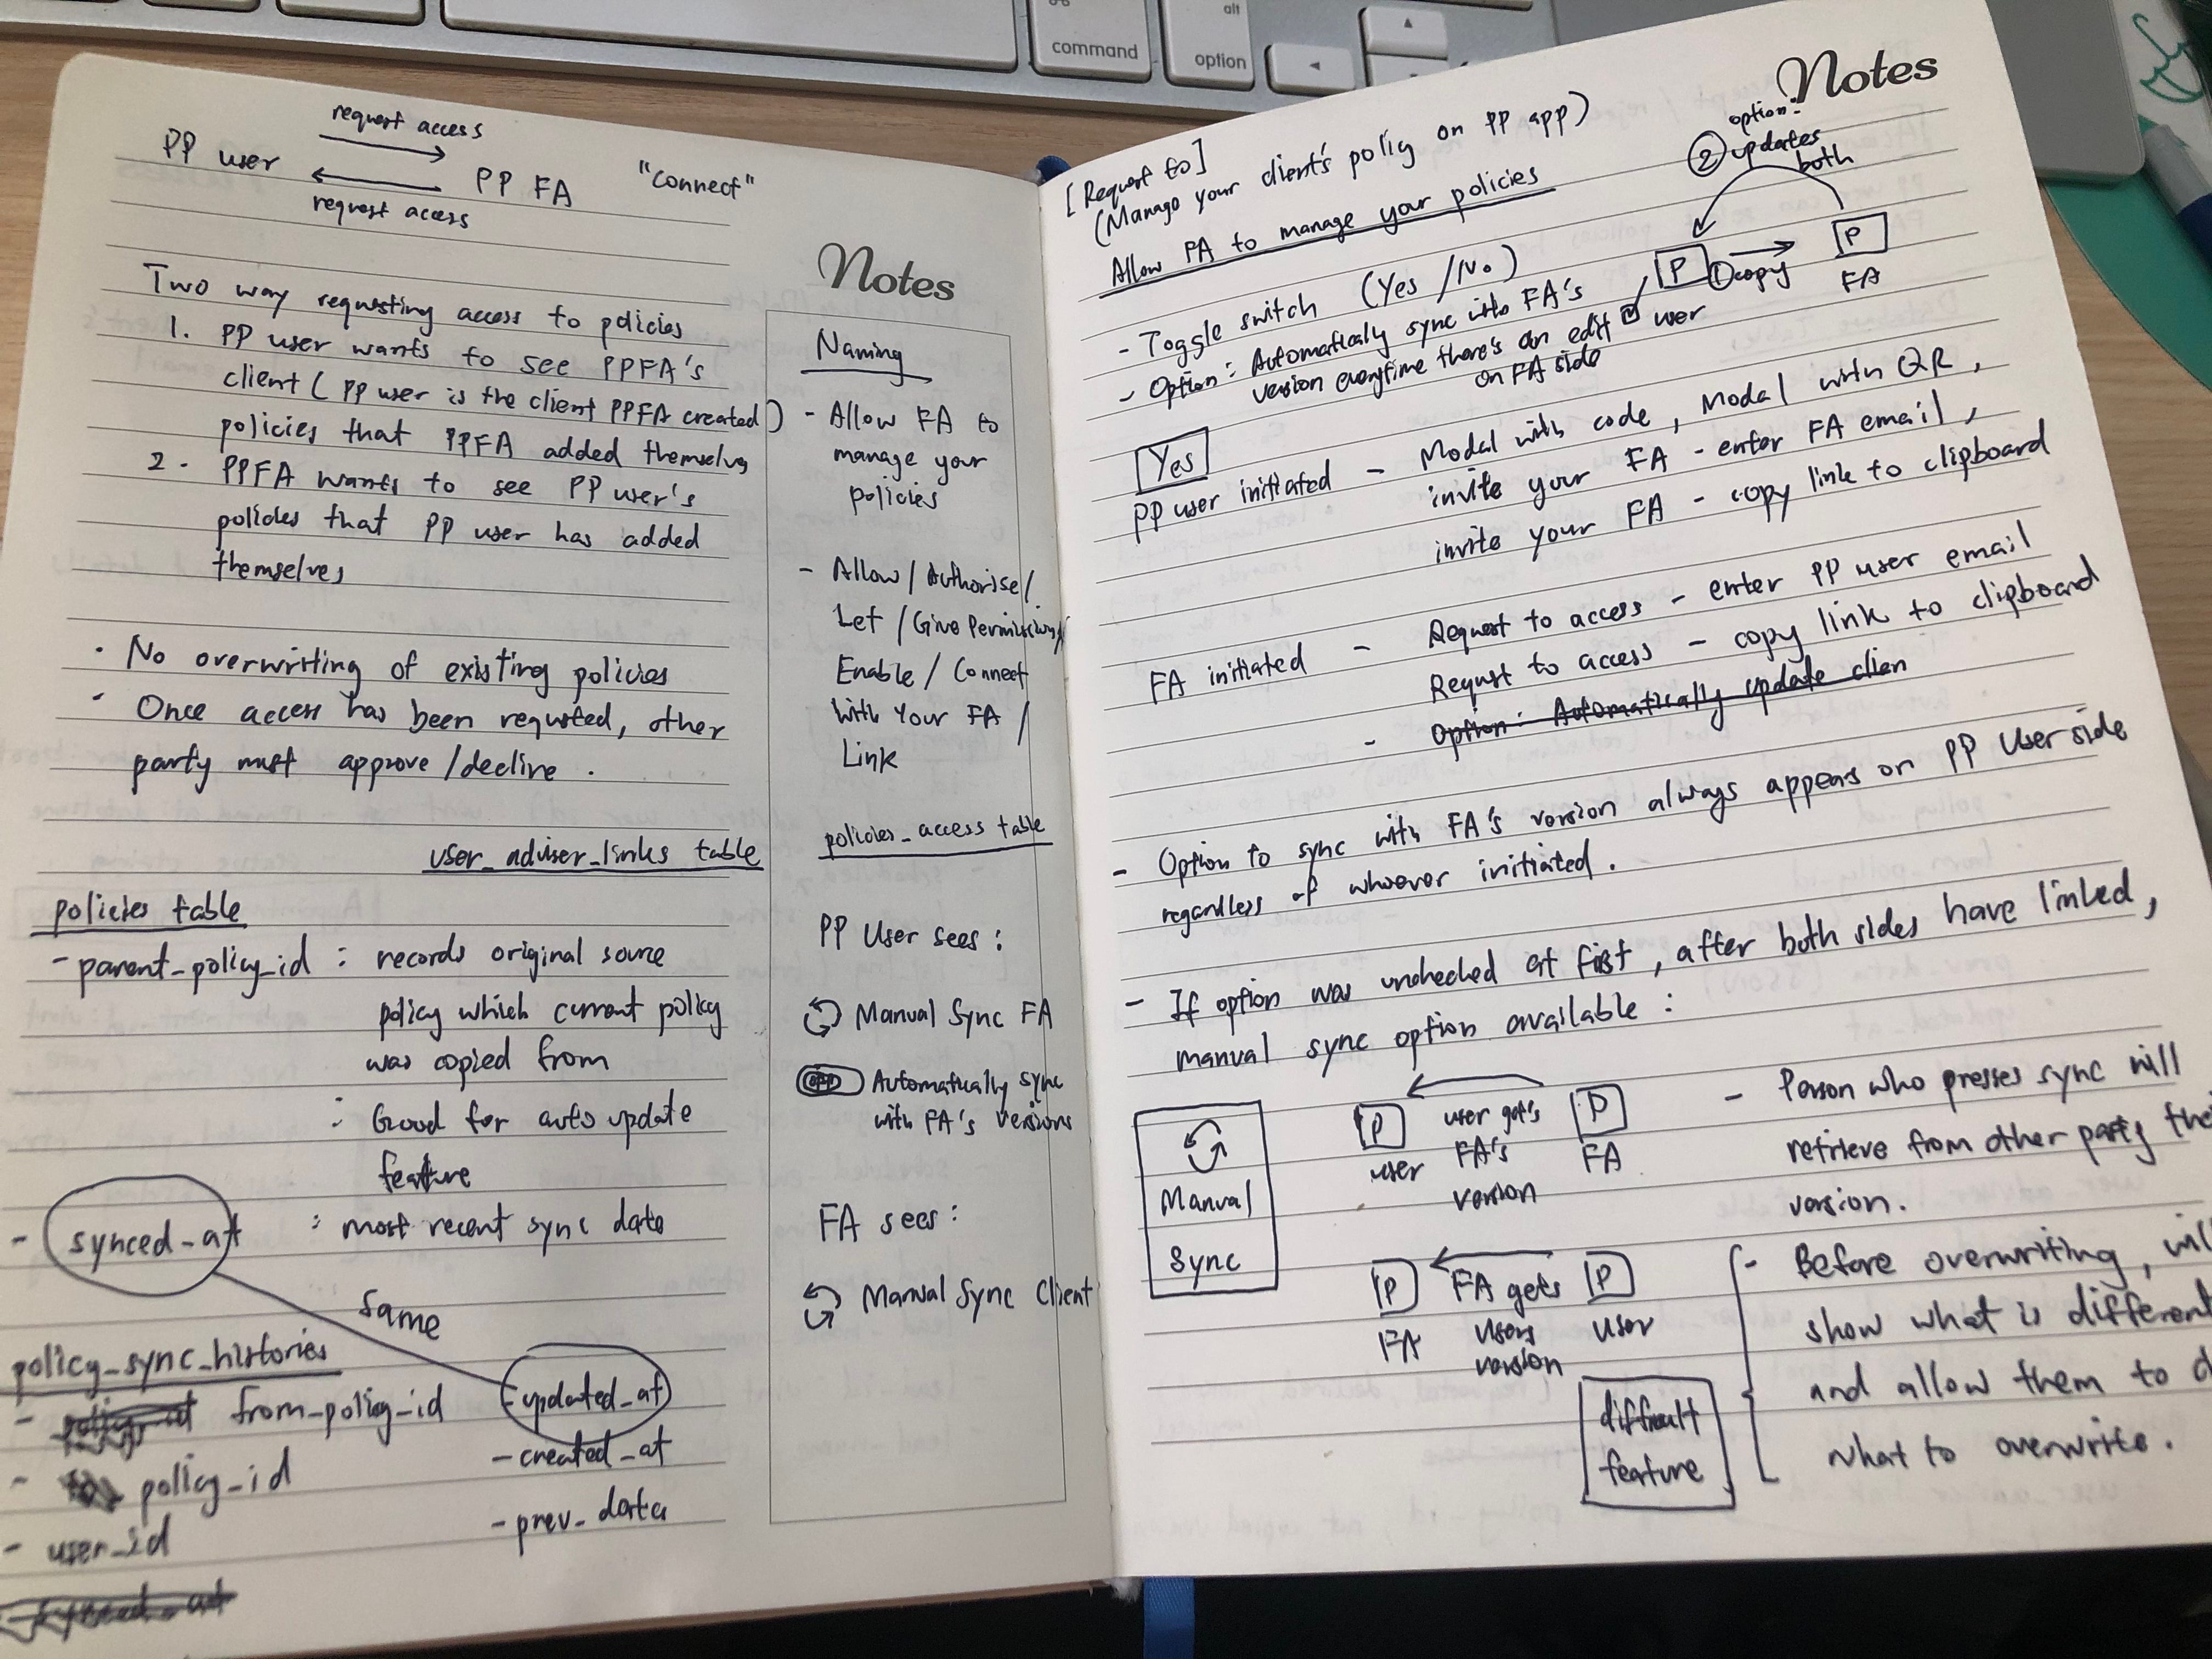 command
alt
option
PP user
request access
request access
PP FA
"Connect"
Two way requesting access to policies
1. PP user wants to see PPFA's
client (PP user is the client PPFA created)
policies that PPFA added themselves
2. PPFA wants to see PP user's
policies that PP user has added
themselves
· No overwriting of existing policies
· Once access has been requested, other
party must approve/decline.
user_adviser_links table
policies table
- parent_policy_id : records original source
policy which current policy
was copied from
: Good for auto update
feature
- synced_at : most recent sync date
same
policy_sync_histories
- from_policy_id
- policy_id
- user_id
- synced_at
- updated_at
- created_at
- prev_data
Notes
Naming
- Allow FA to
manage your
policies
- Allow/Authorise/
Let/Give Permissions/
Enable/Connect
with your FA/
Link
policies_access table
PP User sees:
Manual Sync FA
Automatically sync
with FA's versions
FA sees:
Manual Sync Client
Notes
[Request to]
(Manage your client's policy on PP app)
Allow FA to manage your policies
② option:
updates
both
P ① copy P
user FA
- Toggle switch (Yes/No)
- Option: Automatically sync into FA's
version everytime there's an edit
on FA side
Yes
PP user initiated - Modal with code, Modal with QR,
invite your FA - enter FA email,
invite your FA - copy link to clipboard
FA initiated - Request to access - enter PP user email
Request to access - copy link to clipboard
- Option: Automatically update clien
- Option to sync with FA's version always appears on PP User side
regardless of whoever initiated.
- If option was unchecked at first, after both sides have linked,
manual sync option available:
Manual
Sync
P user gets P
user FA's FA
version
P FA gets P
FA users user
version
- Person who presses sync will
retrieve from other party
version.
- Before overwriting,
show what is different
and allow them to
what to overwrite.
difficult
feature